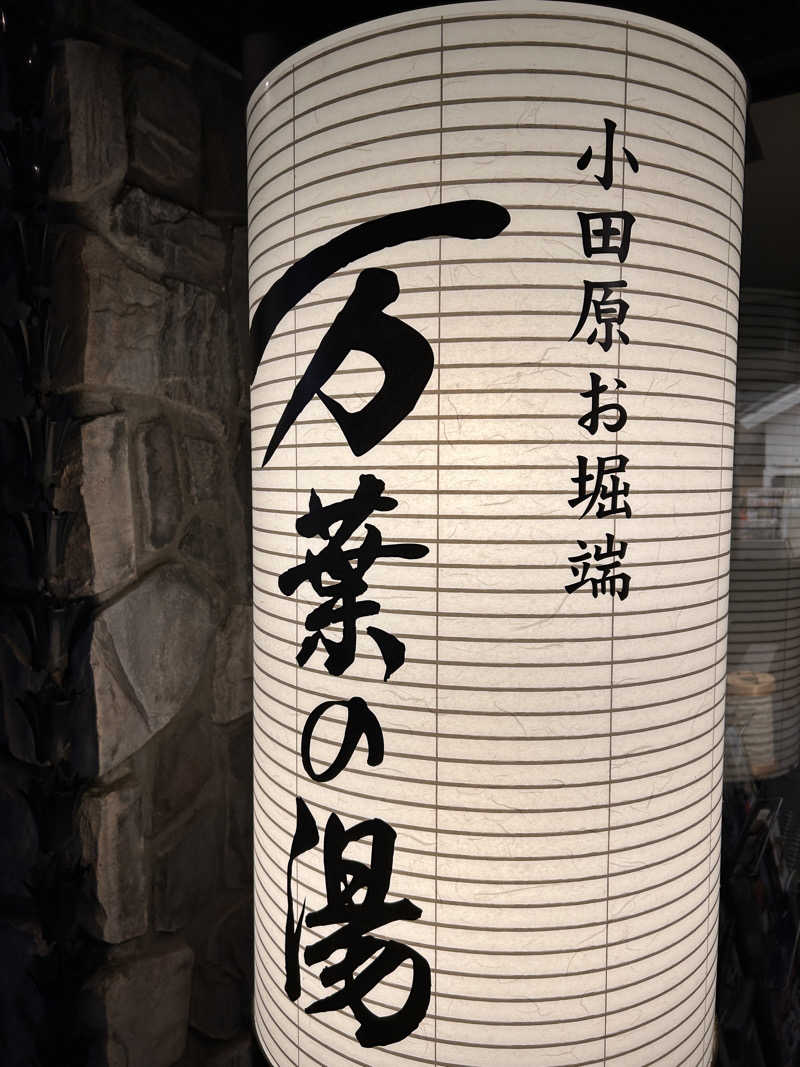 小田原お堀端
万葉の湯